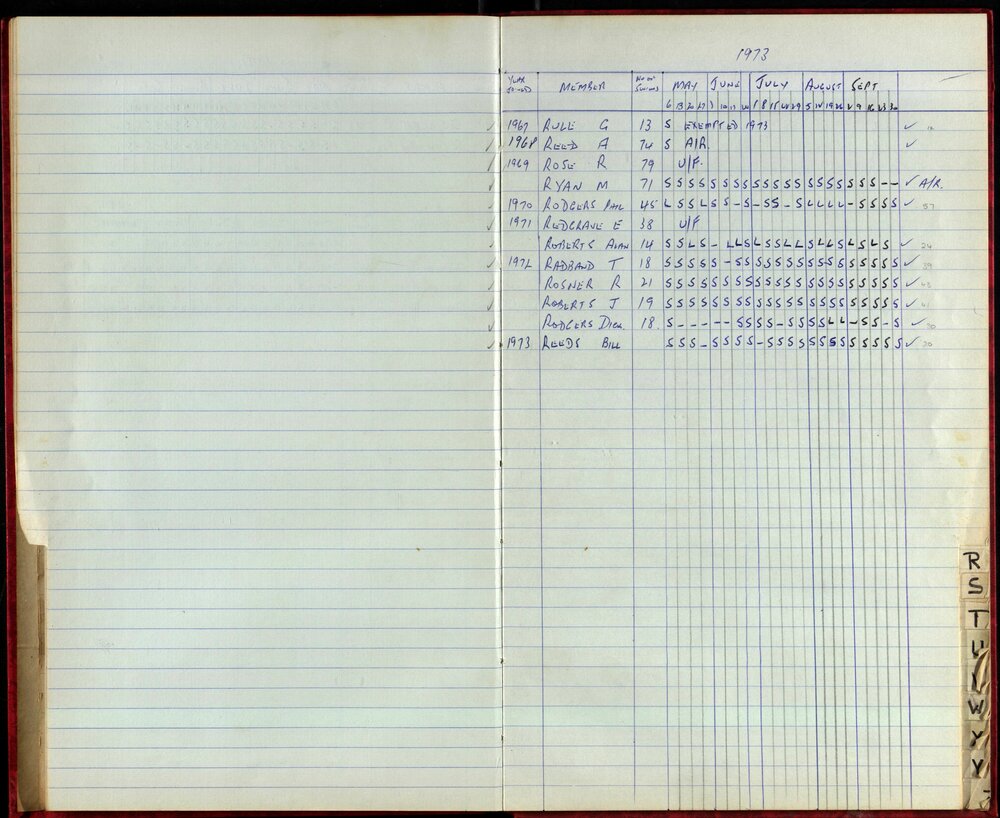 1973
YEAR JOINED MEMBER NO OF SWIMS MAY JUNE JULY AUGUST SEPT
6 13 20 27 3 10 17 24 1 8 15 22 29 5 12 19 26 2 9 16 23 30
✓ 1967 RULE G 13 S EXEMPTED 1973 ✓
✓ 1968 REED A 74 S A/R. ✓
✓ 1969 ROSE R 79 U/F.
RYAN M 71 S S S S S S S S S S S S S S S S S S S S - - ✓ A/R.
✓ 1970 RODGERS PHIL 45 L S S L S S - S - S S - S L L L L - S S S S ✓ 57
✓ 1971 REDGRAVE E 38 U/F
✓ ROBERTS ALAN 14 S S L S - L L S L S S L L S L L S L S L S ✓ 24
✓ 1972 RADBAND T 18 S S S S S - S S S S S S S S S S S S S S S S ✓ 39
✓ ROSNER R 21 S S S S S S S S S S S S S S S S S S S S S S ✓ 43
✓ ROBERTS J 19 S S S S S S S S S S S S S S S S S S S S S S ✓ 41
✓ RODGERS DICK 18 S - - - - - S S S S - S S S S L L - S S - S ✓ 30
✓ 1973 REEDS BILL S S S - S S S S - S S S S S S S S S S S S S ✓ 20
R
S
T
U
W
Y
Y